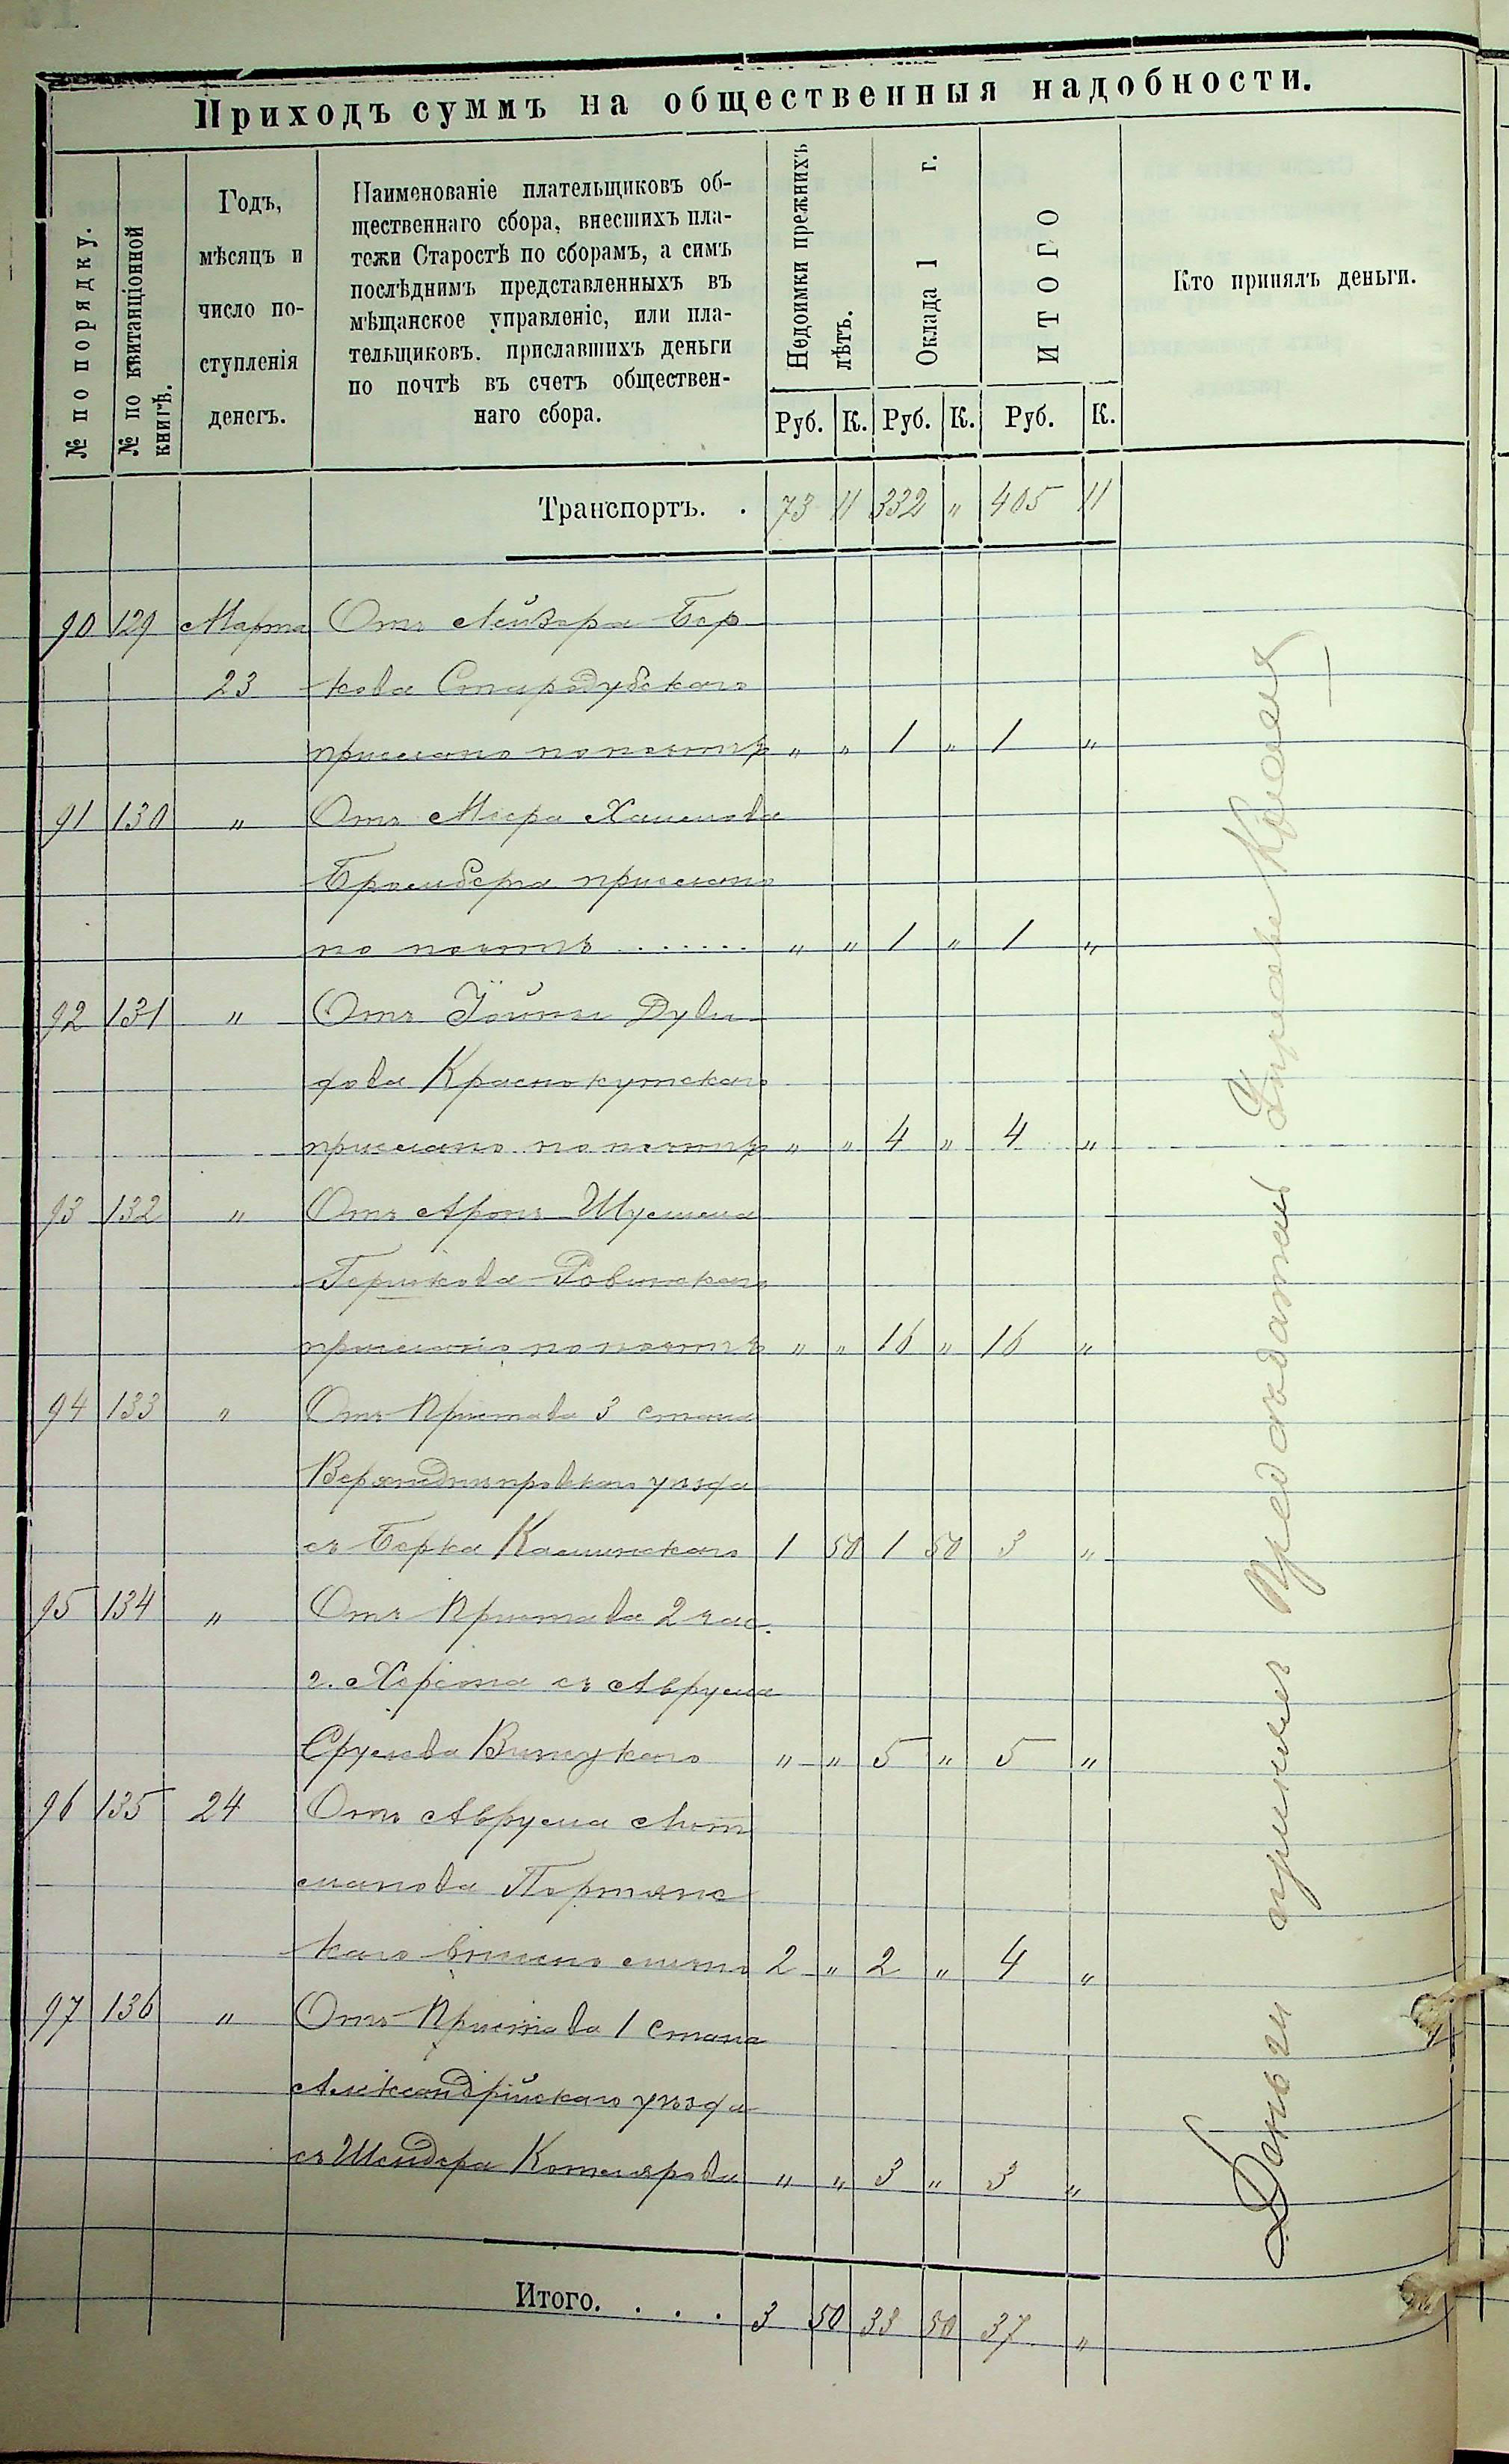 Приходъ суммъ на общественныя надобности.
№ по порядку.
№ по квитанціонной книгѣ.
Годъ,
мѣсяцъ и
число по-
ступленія
денегъ.
Наименованіе плательщиковъ об-
щественнаго сбора, внесшихъ пла-
тежи Старостѣ по сборамъ, а симъ
послѣднимъ представленныхъ въ
мѣщанское управленіе, или пла-
тельщиковъ. приславшихъ деньги
по почтѣ въ счетъ обществен-
наго сбора.
Недоимки прежнихъ лѣтъ.
Оклада 1 г.
ИТОГО
Кто принялъ деньги.
Руб. К. Руб. К. Руб. К.
Транспортъ. . 73 11 332 " 405 11
90 129 Марта Отъ Лейзера Бер
23 кова Стародубскаго
прислано по почтѣ " " 1 " 1 "
91 130 " Отъ Меера Хаимова
Бромберга прислано
по почтѣ ....... " " 1 " 1 "
92 131 " Отъ Іойны Дуви
дова Краснокутскаго
прислано по почтѣ " " 4 " 4 "
93 132 " Отъ Аронъ Шулима
Гершкова Ровинскаго
прислано по почтѣ " " 16 " 16 "
94 133 " Отъ Пристава 3 стана
Верхнеднѣпровскаго уѣзда
съ Берка Каминскаго 1 50 1 50 3 "
95 134 " Отъ Пристава 2 час.
г. Херсона съ Аврума
Срулева Виницкаго " " 5 " 5 "
96 135 24 Отъ Аврума Лит
манова Портянс
каго внесено лично 2 " 2 " 4 "
97 136 " Отъ Пристава 1 Стана
Александрійскаго уѣзда
съ Шендера Котлярова " " 3 " 3 "
Итого. . . . 3 50 33 50 37 "
Деньги принялъ Предсѣдатель